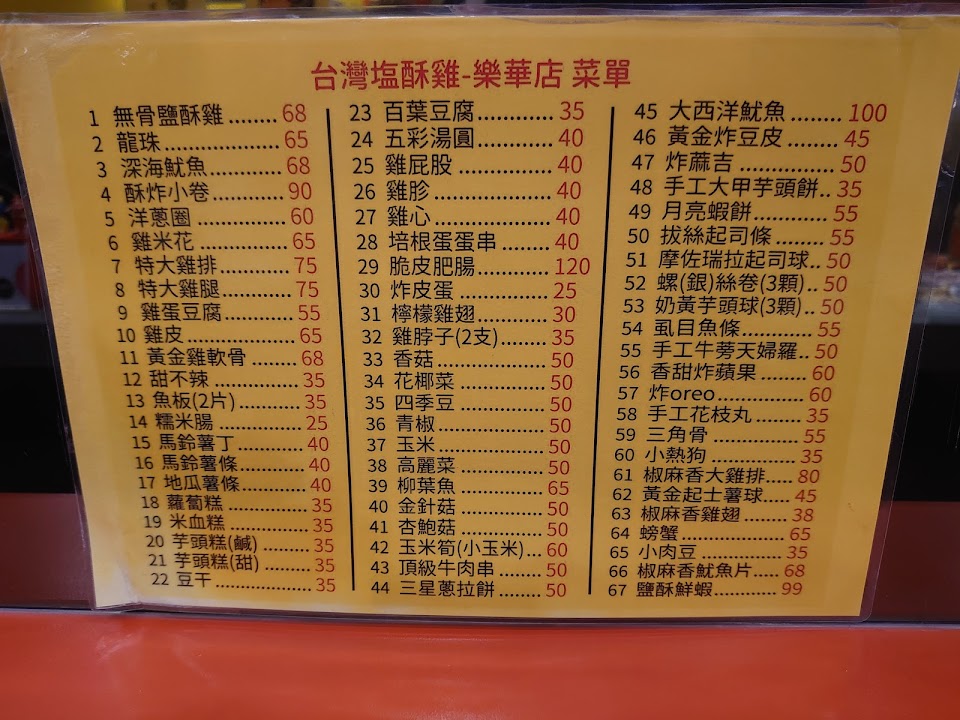 台灣塩酥雞-樂華店 菜單
1 無骨鹽酥雞........ 68
2 龍珠.................. 65
3 深海魷魚............ 68
4 酥炸小卷............ 90
5 洋蔥圈 ............... 60
6 雞米花 ............... 65
7 特大雞排............ 75
8 特大雞腿............ 75
9 雞蛋豆腐............ 55
10 雞皮 .................. 65
11 黃金雞軟骨 ........ 68
12 甜不辣 ............... 35
13 魚板(2片)........... 35
14 糯米腸 ............... 25
15 馬鈴薯丁............ 40
16 馬鈴薯條............ 40
17 地瓜薯條............ 40
18 蘿蔔糕 ............... 35
19 米血糕 ............... 35
20 芋頭糕(鹹) ........ 35
21 芋頭糕(甜) ........ 35
22 豆干 .................. 35
23 百葉豆腐............ 35
24 五彩湯圓............ 40
25 雞屁股 ............... 40
26 雞胗 .................. 40
27 雞心 .................. 40
28 培根蛋蛋串 ........ 40
29 脆皮肥腸............ 120
30 炸皮蛋 ............... 25
31 檸檬雞翅............ 30
32 雞脖子(2支)........ 35
33 香菇 .................. 50
34 花椰菜 ............... 50
35 四季豆 ............... 50
36 青椒 .................. 50
37 玉米 .................. 50
38 高麗菜 ............... 50
39 柳葉魚 ............... 65
40 金針菇 ............... 50
41 杏鮑菇 ............... 50
42 玉米筍(小玉米)... 60
43 頂級牛肉串 ........ 50
44 三星蔥拉餅 ........ 50
45 大西洋魷魚 ........ 100
46 黃金炸豆皮 ........ 45
47 炸蔴吉 ............... 50
48 手工大甲芋頭餅.. 35
49 月亮蝦餅............ 55
50 拔絲起司條 ........ 55
51 摩佐瑞拉起司球.. 50
52 螺(銀)絲卷(3顆).. 50
53 奶黃芋頭球(3顆).. 50
54 虱目魚條............ 55
55 手工牛蒡天婦羅.. 50
56 香甜炸蘋果 ........ 60
57 炸oreo............... 60
58 手工花枝丸 ........ 35
59 三角骨 ............... 55
60 小熱狗 ............... 35
61 椒麻香大雞排..... 80
62 黃金起士薯球..... 45
63 椒麻香雞翅 ........ 38
64 螃蟹 .................. 65
65 小肉豆 ............... 35
66 椒麻香魷魚片..... 68
67 鹽酥鮮蝦............ 99